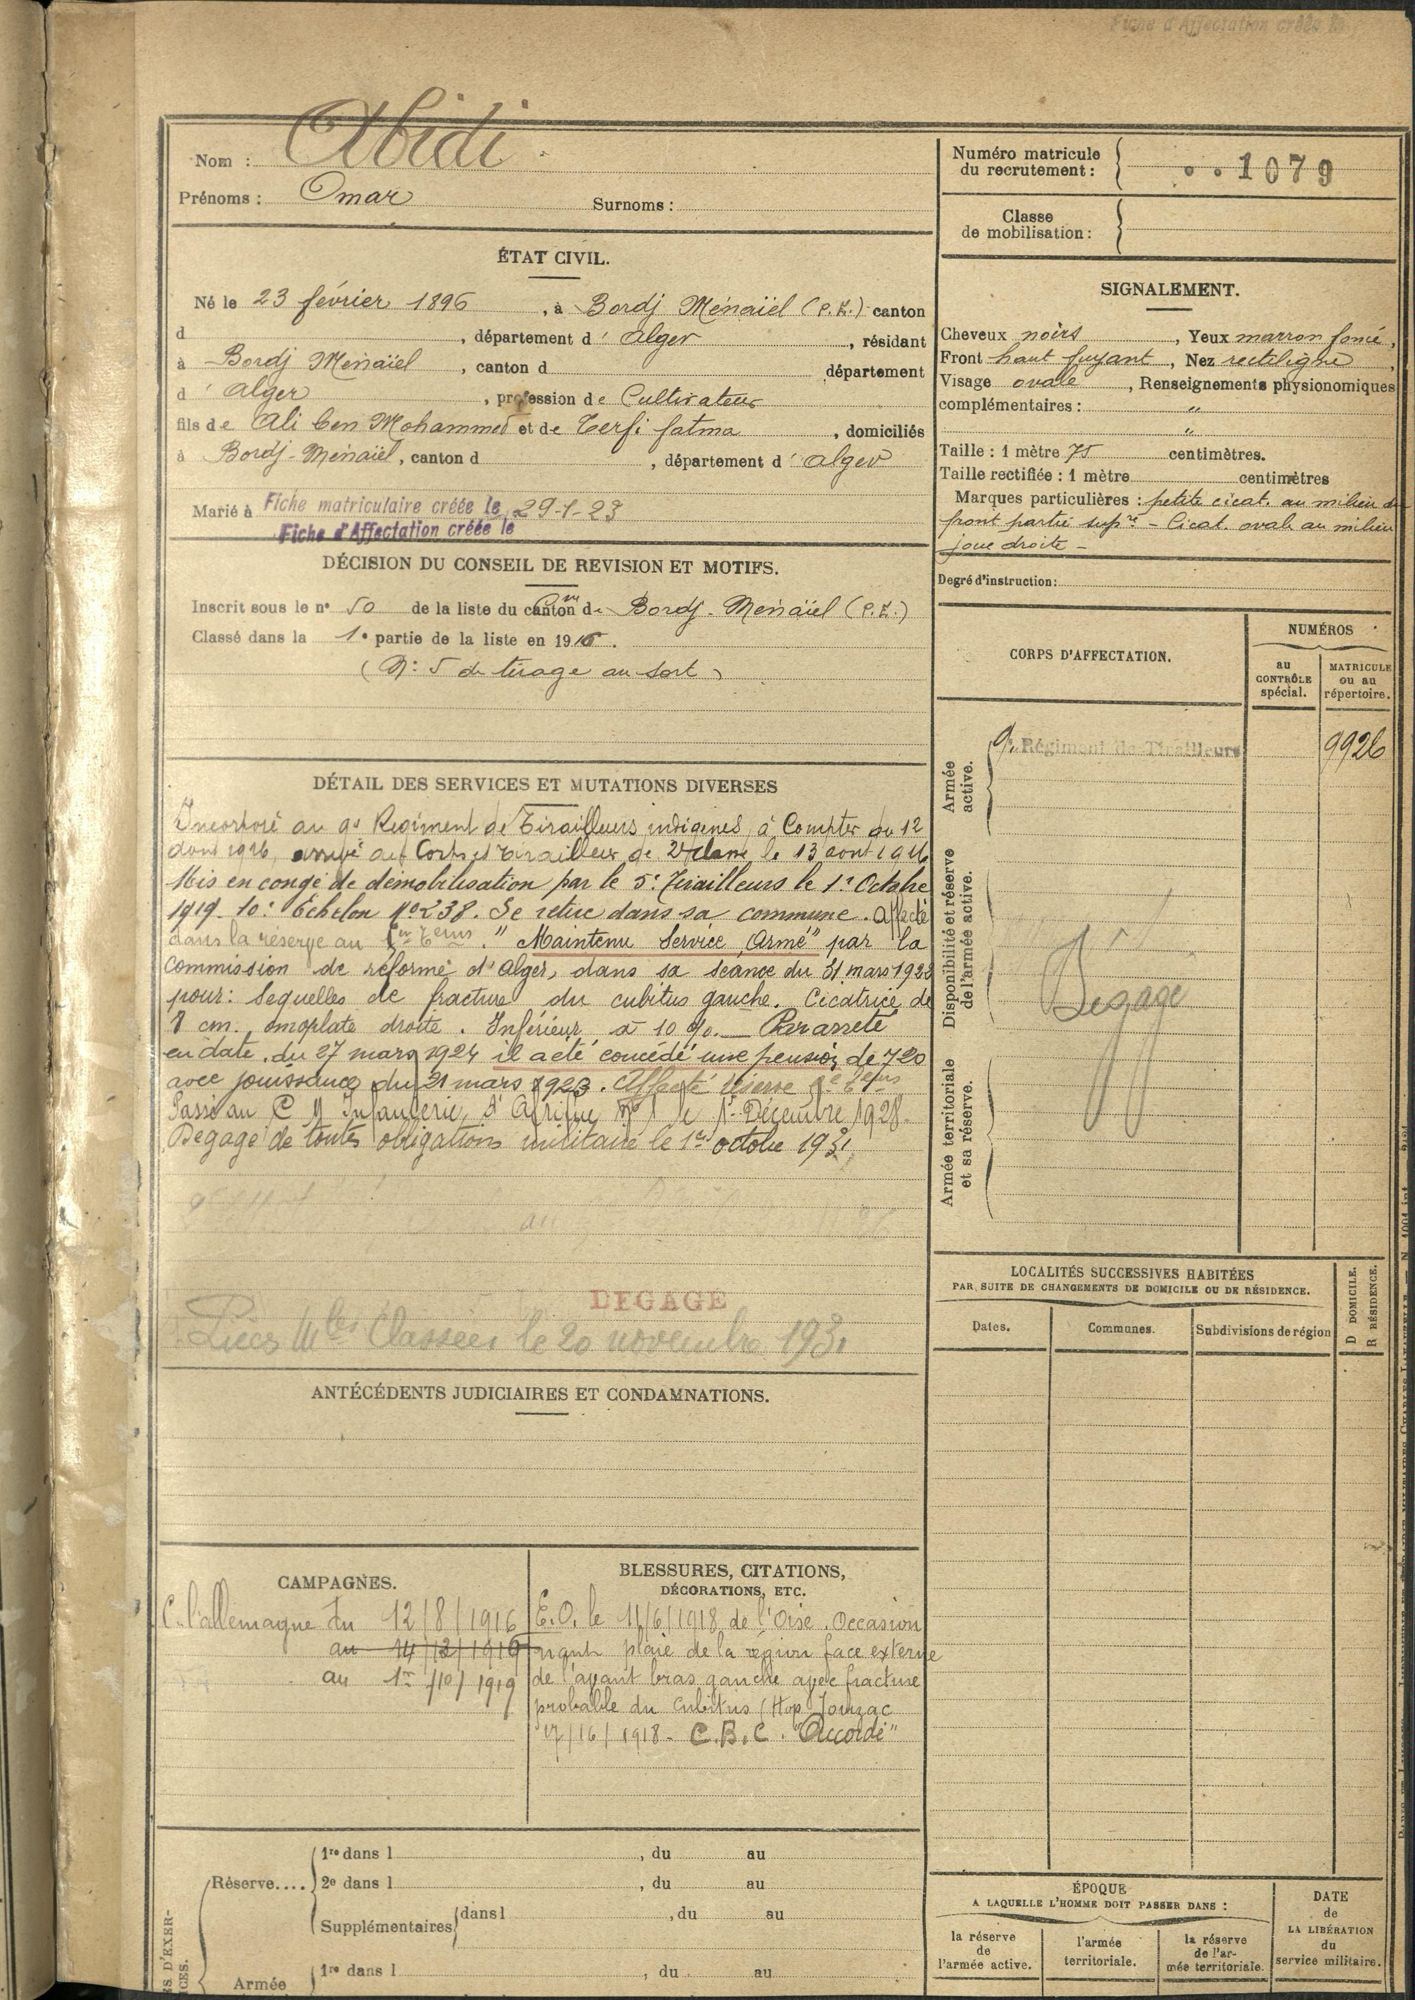 Fiche d'Affectation créée le
Nom : Abidi
Prénoms : Omar Surnoms :
Numéro matricule
du recrutement : 1079
Classe
de mobilisation :
ÉTAT CIVIL.
Né le 23 février 1896, à Bordj Ménaïel (P.E.) canton
d , département d' Alger, résidant
à Bordj Menaïel, canton d département
d' Alger, profession de Cultivateur
fils de Ali ben Mohammed et de Terfi fatma, domiciliés
à Bordj-Menaïel, canton d , département d' Alger
Marié à Fiche matriculaire créée le 29-1-23
Fiche d'Affectation créée le
SIGNALEMENT.
Cheveux noirs, Yeux marron foncé,
Front haut fuyant, Nez rectiligne,
Visage ovale, Renseignements physionomiques
complémentaires : "
"
Taille : 1 mètre 75 centimètres.
Taille rectifiée : 1 mètre centimètres
Marques particulières : petite cicat. au milieu du
front partie supre - Cicat. oval. au milieu
joue droite -
Degré d'instruction :
DÉCISION DU CONSEIL DE REVISION ET MOTIFS.
Inscrit sous le n° 50 de la liste du canton de Bordj-Menaïel (P.E.)
Classé dans la 1e partie de la liste en 1916.
(N: 5 de tirage au sort)
CORPS D'AFFECTATION.
NUMÉROS
au
CONTRÔLE
spécial.
MATRICULE
ou au
répertoire.
Armée
active.
9e Régiment de Tirailleurs 9926
Disponibilité et réserve
de l'armée active.
Dégagé
Armée territoriale
et sa réserve.
DÉTAIL DES SERVICES ET MUTATIONS DIVERSES
Incorporé au 9e Regiment de Tirailleurs indigenes à Compter du 12
aout 1916, arrivé au Corps et tirailleur de 2e classe le 13 aout 1916
Mis en congé de démobilisation par le 5e Tirailleurs le 1er Octobre
1919. 10e Echelon No 238. Se retire dans sa commune. Affecté
dans la réserve au "Maintenu Service Armé" par la
Commission de réforme d'Alger, dans sa séance du 31 mars 1922
pour: Sequelles de fracture du cubitus gauche. Cicatrice de
8 cm. omoplate droite. Inférieur à 10 %. — Par arrêté
en date du 27 mars 1924 il a été concédé une pension de 720
avec jouissance du 21 mars 1923. Affecté réserve
Passé au C M Infanterie d'Afrique No 1 le 1er Décembre 1928.
Dégagé de toutes obligations militaire le 1er octobre 1931
DEGAGÉ
Pièces Mles Classées le 20 novembre 1931
LOCALITÉS SUCCESSIVES HABITÉES
PAR SUITE DE CHANGEMENTS DE DOMICILE OU DE RÉSIDENCE.
Dates. Communes. Subdivisions de région
D DOMICILE.
R RÉSIDENCE.
ANTÉCÉDENTS JUDICIAIRES ET CONDAMNATIONS.
CAMPAGNES.
C. l'allemagne du 12/8/1916
au 14/12/1916
au 1er/10/1919
BLESSURES, CITATIONS,
DÉCORATIONS, ETC.
E.O. le 11/6/1918 de l'Oise. Occasion
nant plaie de la région face externe
de l'avant bras gauche avec fracture
probable du cubitus (Hop Jonzac
17/16/1918 - C.B.C. "Accordé"
Réserve....
1re dans l , du au
2e dans l , du au
Supplémentaires dans l , du au
Armée 1re dans l , du au
ÉPOQUE
A LAQUELLE L'HOMME DOIT PASSER DANS :
la réserve
de
l'armée active.
l'armée
territoriale.
la réserve
de l'ar-
mée territoriale.
DATE
de
LA LIBÉRATION
du
service militaire.